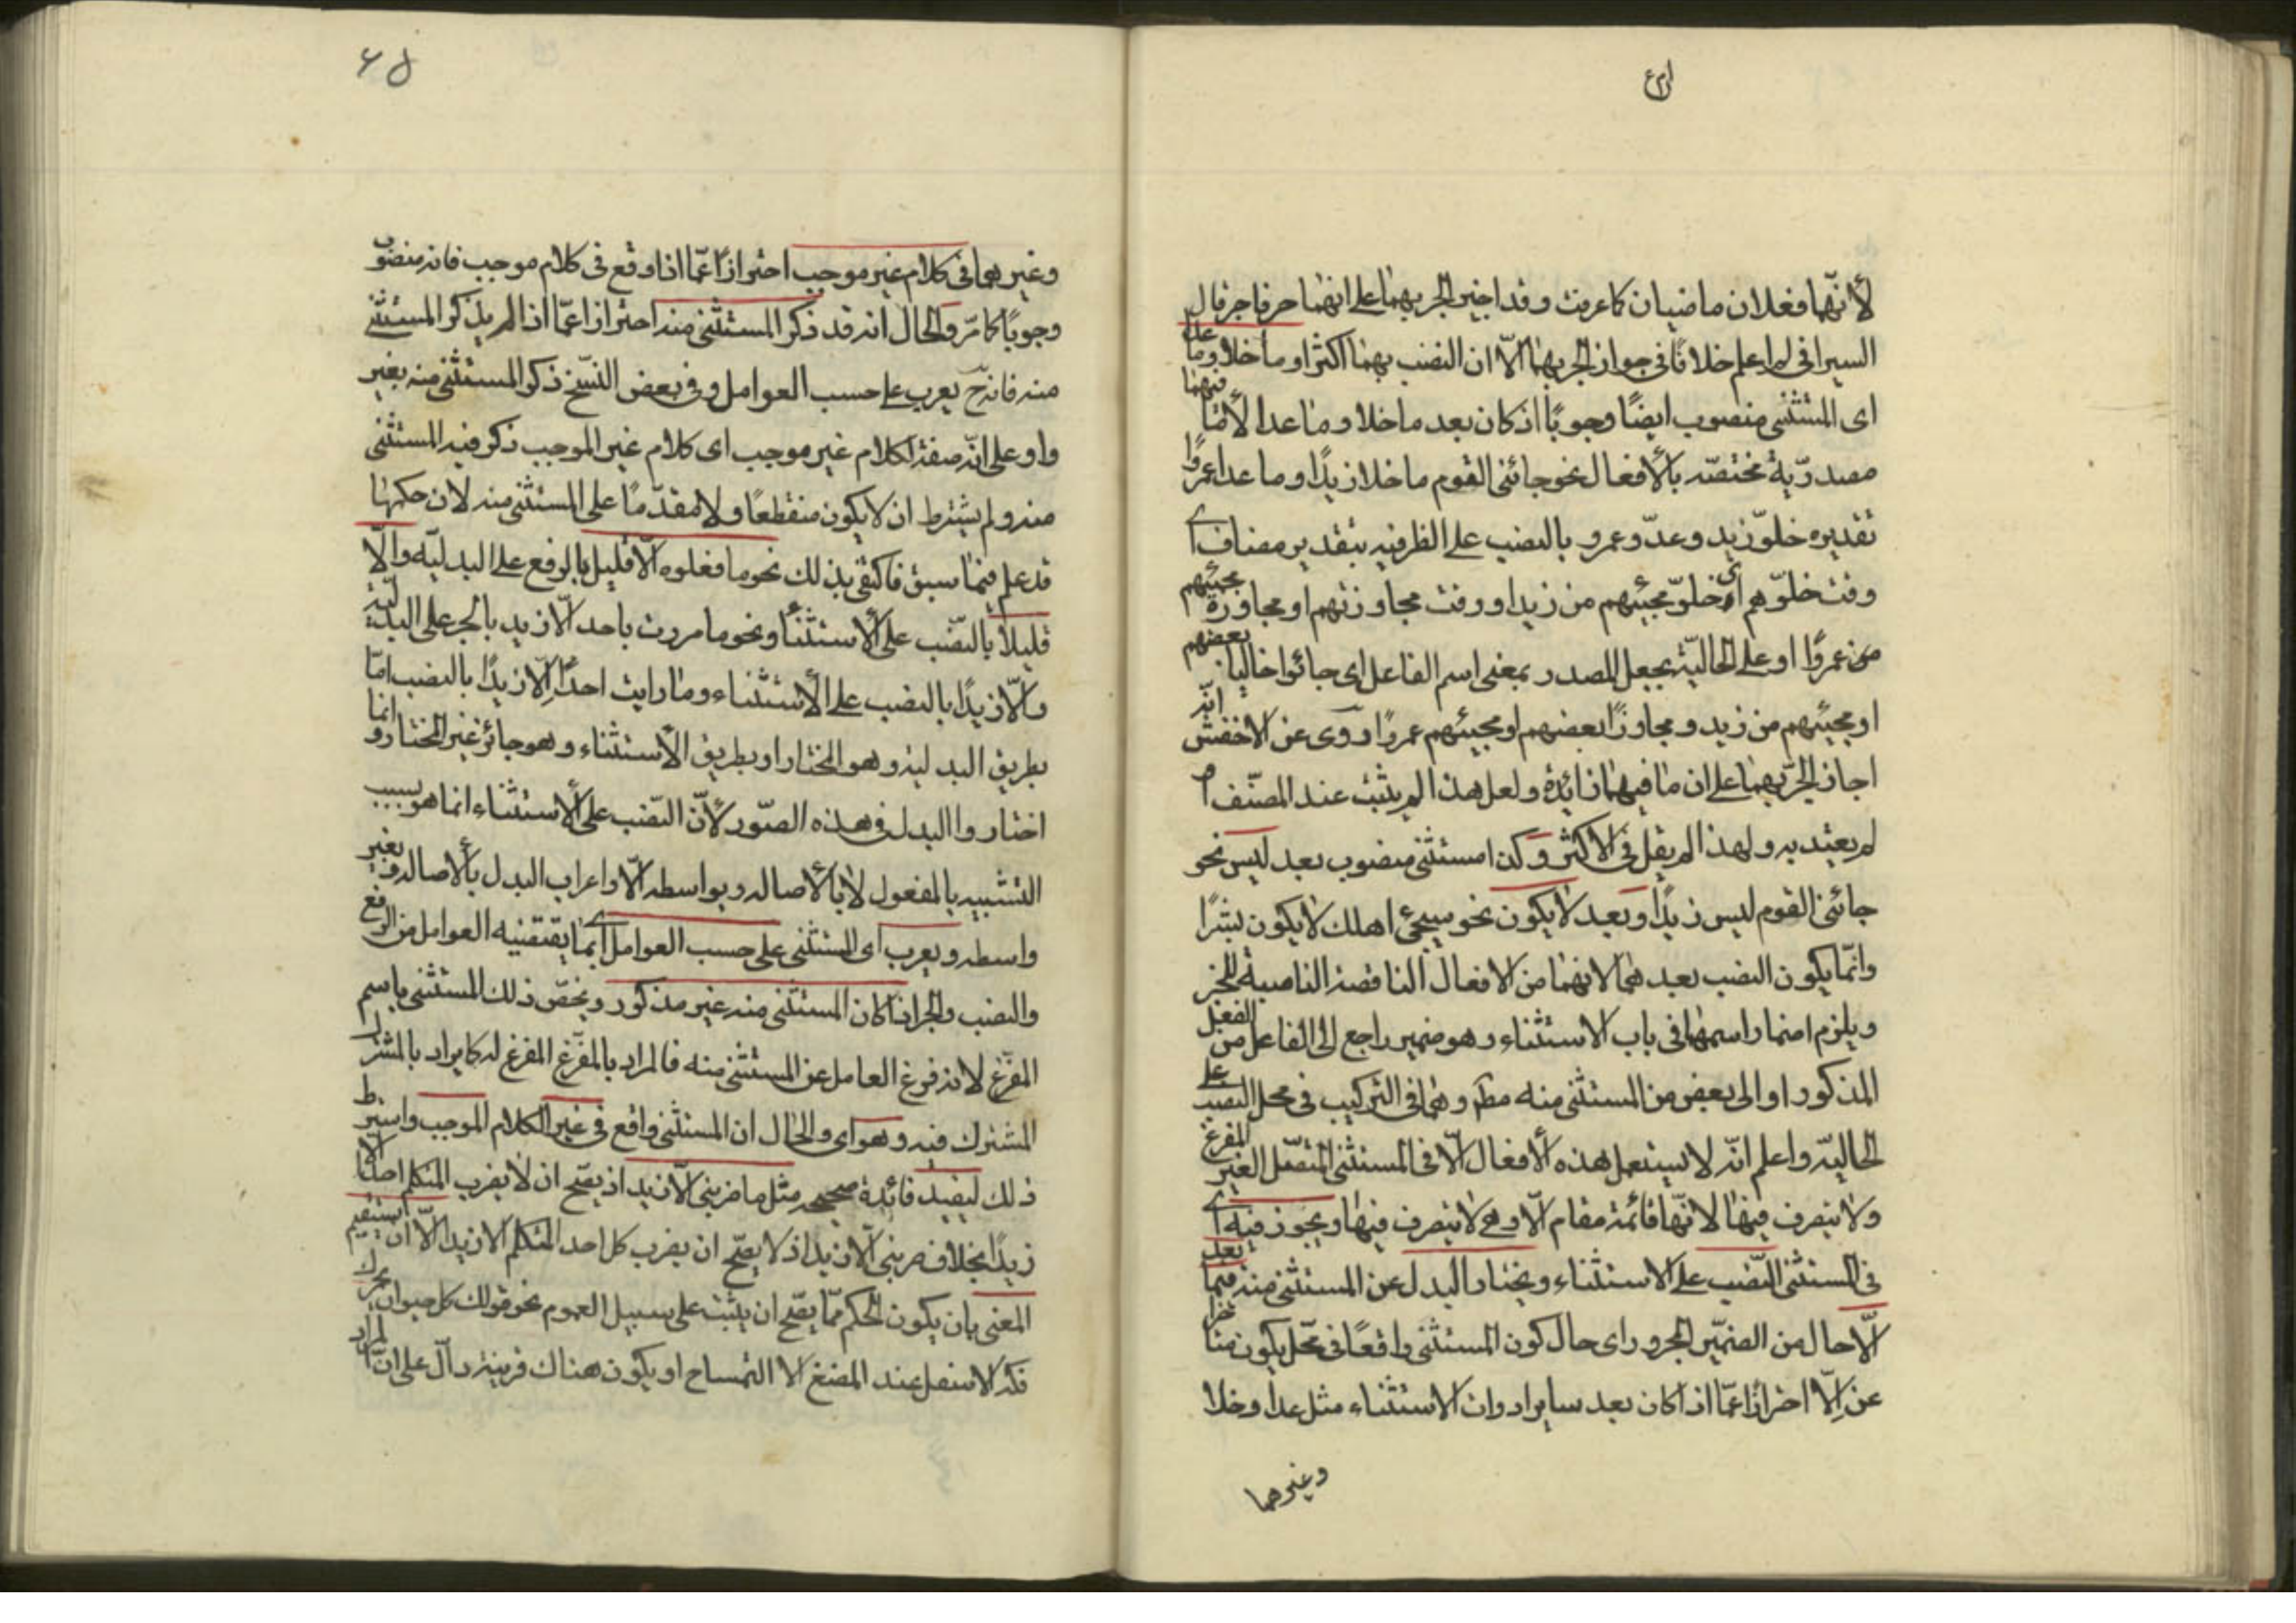 لأنهما فعلان ماضيان كما عرفت وقد اجيز الجر بهما على انهما حرفا جر قال
السيرافي لم اعلم خلافا في جواز الجر بهما الا ان النصب بهما اكثر او ما خلا وما عدا
اى المستثنى منصوب ايضا وجوبا اذ كان بعد ما خلا وما عدا لأن ما فيهما
مصدرية مختصة بالأفعال نحو جائنى القوم ما خلا زيدا وما عدا عمروا
تقديره خلو زيد وعدو عمرو بالنصب على الظرفيه بتقدير مضاف اى
وقت خلوهم اى خلو مجيئهم من زيد او وقت مجاوزتهم او مجاوزة مجيئهم
من عمروا او على الحالية بجعل المصدر بمعنى اسم الفاعل اى جائوا خاليا بعضهم
او مجيئهم من زيد ومجاوزا بعضهم او مجيئهم عمروا وروى عن الاخفش انه
اجاز الجر بهما على ان ما فيهما زائدة ولعل هذا لم يثبت عند المصنف او
لم يعتد به ولهذا لم يقل فى الاكثر وكذا مستثنى منصوب بعد ليس نحو
جائنى القوم ليس زيدا وبعد لا يكون نحو سيجئ اهلك لا يكون بشرا
وانما يكون النصب بعدهما لانهما من الافعال الناقصة الناصبة للخبر
ويلزم اضمار اسمهما فى باب الاستثناء وهو ضمير راجع الى الفاعل من الفعل
المذكور او الى بعض من المستثنى منه مط وهما فى التركيب فى محل النصب على
الحالية واعلم انه لا يستعمل هذه الأفعال الا فى المستثنى المتصل الغير المفرغ
ولا يتصرف فيها لانها قائمة مقام الا وهى لا يتصرف فيها ويجوز فيه اى
فى المستثنى النصب على الاستثناء ويختار البدل عن المستثنى منه فيما بعد
الا حال من الضمير المجرور اى حال كون المستثنى واقعا فى محل يكون متاخرا
عن الا احترازا عما اذا كان بعد ساير ادوات الاستثناء مثل عدا وخلا
وغيرهما
وغيرهما فى كلام غير موجب احترازا عما اذا وقع فى كلام موجب فانه منصوب
وجوبا كما مر والحال انه قد ذكر المستثنى منه احترازا عما اذا لم يذكر المستثنى
منه فانه ح يعرب على حسب العوامل وفى بعض النسخ ذكر المستثنى منه بغير
واو على انه صفة لكلام غير موجب اى كلام غير الموجب ذكر فيه المستثنى
منه ولم يشترط ان لا يكون منقطعا ولا مقدما على المستثنى منه لان حكمهما
قد علم فيما سبق فاكتفى بذلك نحو ما فعلوه الا قليل بالرفع على البدلية والا
قليلا بالنصب على الأستثناء ونحو ما مررت باحد الا زيد بالجر على البدلية
والا زيدا بالنصب على الأستثناء وما رايت احدا الا زيدا بالنصب اما
بطريق البدلية وهو المختار او بطريق الأستثناء وهو جائز غير المختار وانما
اختاروا البدل فى هذه الصور لأن النصب على الأستثناء انما هو بسبب
التشبيه بالمفعول لا بالأصالة وبواسطه الا واعراب البدل بالأصاله وبغير
واسطه ويعرب اى المستثنى على حسب العوامل اى بما يقتضيه العوامل من الرفع
والنصب والجر اذا كان المستثنى منه غير مذكور ويختص ذلك المستثنى باسم
المفرغ لانه فرغ العامل عن المستثنى منه فالمراد بالمفرغ المفرغ له كما يراد بالمشترك
المشترك فيه وهو اى والحال ان المستثنى واقع فى غير الكلام الموجب واشترط
ذلك ليفيد فائدة صحيحه مثل ما ضربنى الا زيد اذ يصح ان لا يضرب المتكلم احد الا
زيدا بخلاف ضربنى الا زيد اذ لا يصح ان يضرب كل احد المتكلم الا زيدا الا ان يستقيم
المعنى بان يكون الحكم مما يصح ان يثبت على سبيل العموم نحو قولك كل حيوان يحرك
فكه الاسفل عند المضغ الا التمساح او يكون هناك قرينة دال على ان المراد